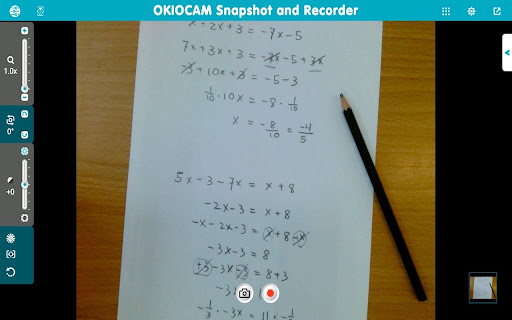 OKIOCAM Snapshot and Recorder
x + 2x + 3 = -7x - 5
7x + 3x + 3 = -7x - 5 + 7x
-3 + 10x + 3 = -5 - 3
1/10 · 10x = -8 · 1/10
x = -8/10 = -4/5
1.0x
0°
+0
5x - 3 - 7x = x + 8
-2x - 3 = x + 8
-x - 2x - 3 = x + 8 - x
-3x - 3 = 8
+3 - 3x - 3 = 8 + 3
-1/3 · -3x = 11 · -1/3